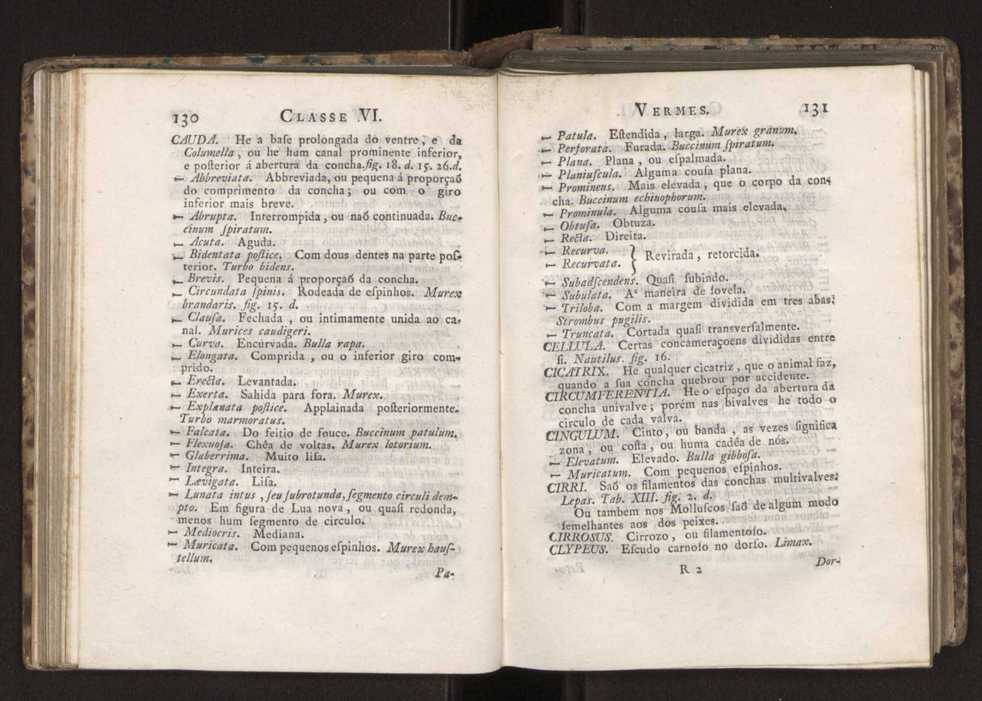 130 CLASSE VI.
CAUDA. He a baſe prolongada do ventre, e da
Columella, ou he hum canal prominente inferior,
e poſterior á abertura da concha. fig. 18. d. 15. 26.d.
— Abbreviata. Abbreviada, ou pequena á proporçaõ
do comprimento da concha; ou com o giro
inferior mais breve.
— Abrupta. Interrompida, ou naõ continuada. Buc-
cinum ſpiratum.
— Acuta. Aguda.
— Bidentata poſtice. Com dous dentes na parte poſ-
terior. Turbo bidens.
— Brevis. Pequena á proporçaõ da concha.
— Circundata ſpinis. Rodeada de eſpinhos. Murex
brandaris. fig. 15. d.
— Clauſa. Fechada, ou intimamente unida ao ca-
nal. Murices caudigeri.
— Curva. Encurvada. Bulla rapa.
— Elongata. Comprida, ou o inferior giro com-
prido.
— Erecta. Levantada.
— Exerta. Sahida para fora. Murex.
— Explanata poſtice. Applainada poſteriormente.
Turbo marmoratus.
— Falcata. Do feitio de fouce. Buccinum patulum.
— Flexuoſa. Chêa de voltas. Murex lotorium.
— Glaberrima. Muito liſa.
— Integra. Inteira.
— Lævigata. Liſa.
— Lunata intus, ſeu ſubrotunda, ſegmento circuli dem-
pto. Em figura de Lua nova, ou quaſi redonda,
menos hum ſegmento de circulo.
— Mediocris. Mediana.
— Muricata. Com pequenos eſpinhos. Murex hauſ-
tellum.
Pa-
VERMES. 131
— Patula. Eſtendida, larga. Murex granum.
— Perforata. Furada. Buccinum ſpiratum.
— Plana. Plana, ou eſpalmada.
— Planiuſcula. Alguma couſa plana.
— Prominens. Mais elevada, que o corpo da con-
cha. Buccinum echinophorum.
— Prominula. Alguma couſa mais elevada.
— Obtuſa. Obtuza.
— Recta. Direita.
— Recurva. } Revirada, retorcida.
— Recurvata.
— Subadſcendens. Quaſi ſubindo.
— Subulata. A' maneira de ſovela.
— Triloba. Com a margem dividida em tres abas.
Strombus pugilis.
— Truncata. Cortada quaſi transverſalmente.
CELLULA. Certas concameraçoens divididas entre
ſi. Nautilus. fig. 16.
CICATRIX. He qualquer cicatriz, que o animal faz,
quando a ſua concha quebrou por accidente.
CIRCUMFERENTIA. He o eſpaço da abertura da
concha univalve; porém nas bivalves he todo o
circulo de cada valva.
CINGULUM. Cinto, ou banda, as vezes ſignifica
zona, ou coſta, ou huma cadêa de nós.
— Elevatum. Elevado. Bulla gibboſa.
— Muricatum. Com pequenos eſpinhos.
CIRRI. Saõ os filamentos das conchas multivalves.
Lepas. Tab. XIII. fig. 2. d.
Ou tambem nos Molluſcos ſaõ de algum modo
ſemelhantes aos dos peixes.
CIRROSUS. Cirrozo, ou filamentoſo.
CLYPEUS. Eſcudo carnoſo no dorſo. Limax.
R 2 Dor-